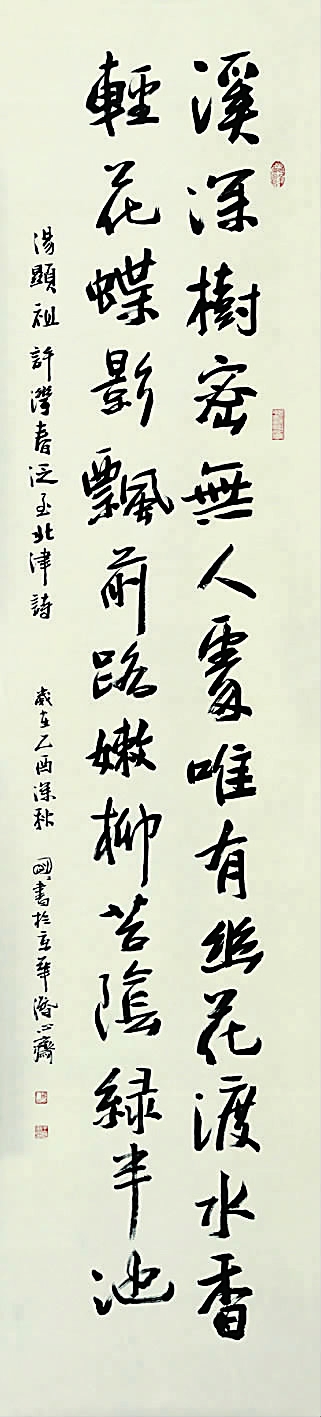 溪深樹密無人處唯有幽花渡水香
輕花蝶影飄前路嫩柳苔陰綠半池
湯顯祖許灣春泛至北津詩
歲在乙酉深秋 國書於京華潛心齋